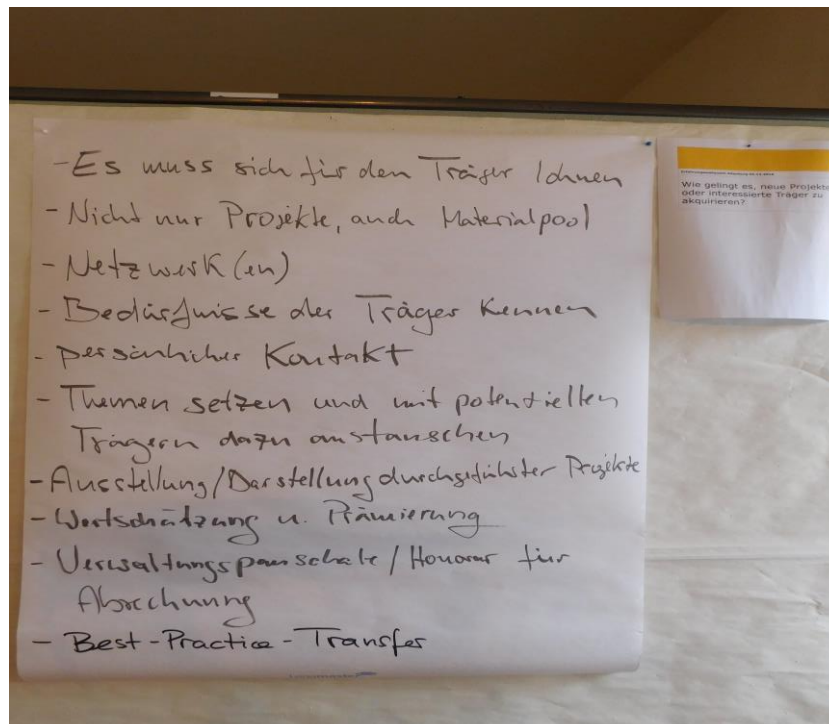 - Es muss sich für den Träger lohnen
- Nicht nur Projekte, auch Materialpool
- Netzwerk(en)
- Bedürfnisse der Träger kennen
- persönlicher Kontakt
- Themen setzen und mit potentiellen
Trägern dazu austauschen
- Ausstellung/Darstellung durchgeführter Projekte
- Wertschätzung u. Prämierung
- Verwaltungspauschale/Honorar für
Abrechnung
- Best-Practice-Transfer
Wie gelingt es, neue Projekte
oder interessierte Träger zu
akquirieren?